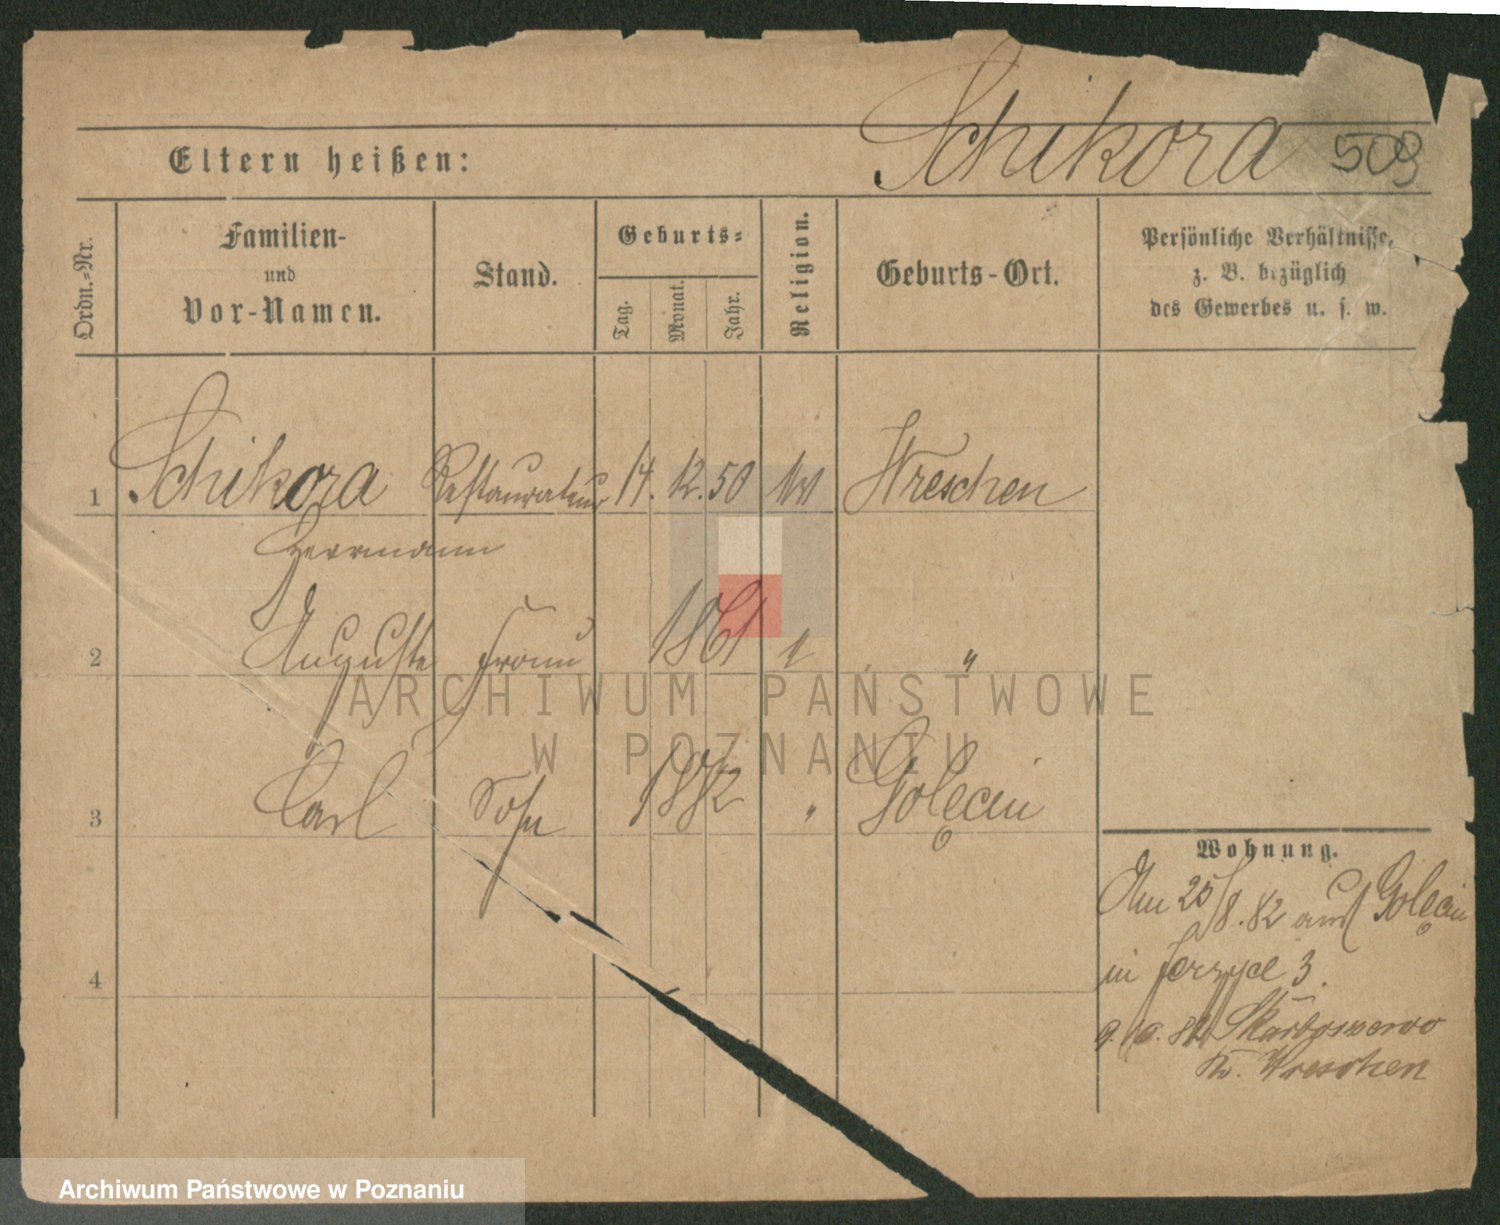 Schikora 509
Eltern heißen:
Ordn.-Nr.
Familien-
und
Vor-Namen.
Stand.
Geburts-
Tag.
Monat.
Jahr.
Religion.
Geburts-Ort.
Persönliche Verhältnisse,
z. B. bezüglich
des Gewerbes u. s. w.
1 Schikora Restaurateur 14. 12. 50 Wreschen
Herrmann
2 Auguste Frau 1861 "
3 Carl Sohn 1882 " Golęcin
4
Wohnung.
Am 25/8. 82 aus Golęcin
in Jerzyce 3.
Kr. Wreschen
ARCHIWUM PAŃSTWOWE
W POZNANIU
Archiwum Państwowe w Poznaniu